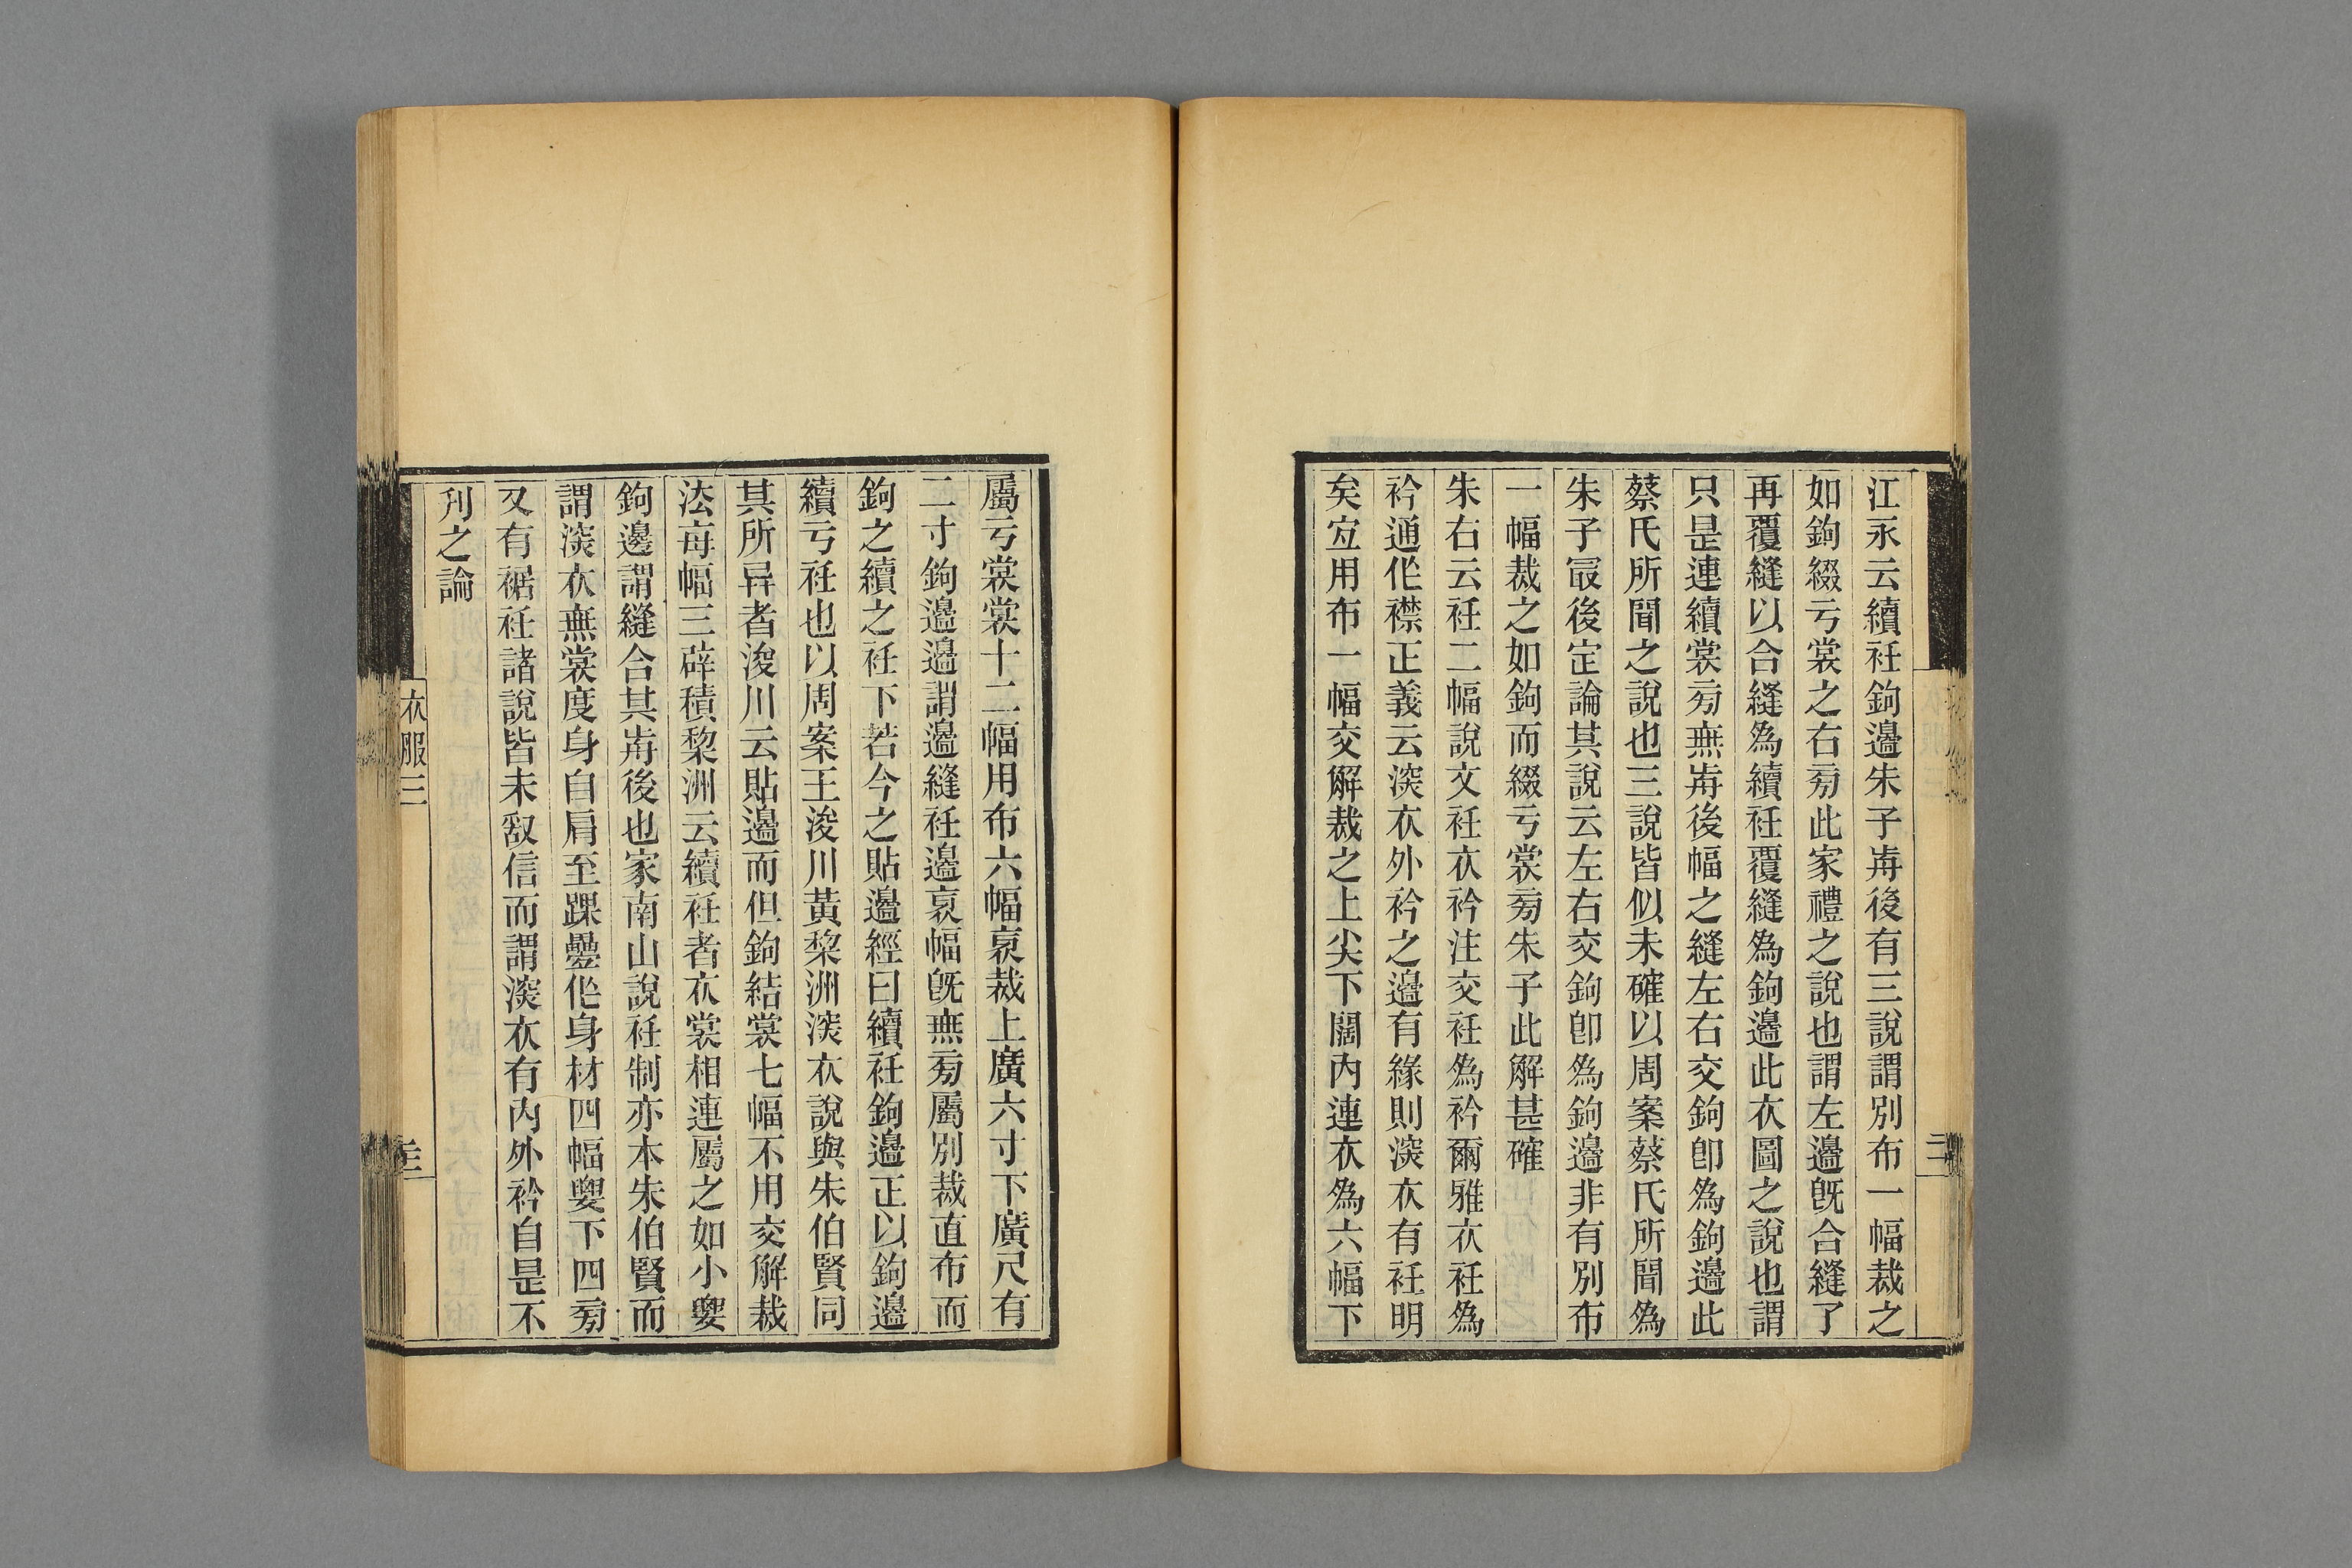 江永云續衽鉤邊朱子歬後有三說謂別布一幅裁之
如鉤綴亏裳之右㫄此家禮之說也謂左邊旣合縫了
再覆縫以合縫爲續衽覆縫爲鉤邊此衣圖之說也謂
只是連續裳㫄無歬後幅之縫左右交鉤卽爲鉤邊此
蔡氏所聞之說也三說皆似未確以周案蔡氏所聞爲
朱子㝡後定論其說云左右交鉤卽爲鉤邊非有別布
一幅裁之如鉤而綴亏裳㫄朱子此解甚確
朱右云衽二幅說文衽衣衿注交衽爲衿爾雅衣衽爲
衿通作襟正義云深衣外衿之邊有緣則深衣有衽明
矣宐用布一幅交解裁之上尖下闊內連衣爲六幅下
屬亏裳裳十二幅用布六幅衺裁上廣六寸下廣尺有
二寸鉤邊邊謂邊縫衽邊衺幅旣無㫄屬別裁直布而
鉤之續之衽下若今之貼邊經曰續衽鉤邊正以鉤邊
續亏衽也以周案王浚川黃棃洲深衣說與朱伯賢同
其所异者浚川云貼邊而但鉤結裳七幅不用交解裁
法每幅三薜積棃洲云續衽者衣裳相連屬之如小要
鉤邊謂縫合其歬後也家南山說衽制亦本朱伯賢而
謂深衣無裳度身自肩至踝疊作身材四幅要下四㫄
又有裾衽諸說皆未敢信而謂深衣有內外衿自是不
刋之論
衣服三
三